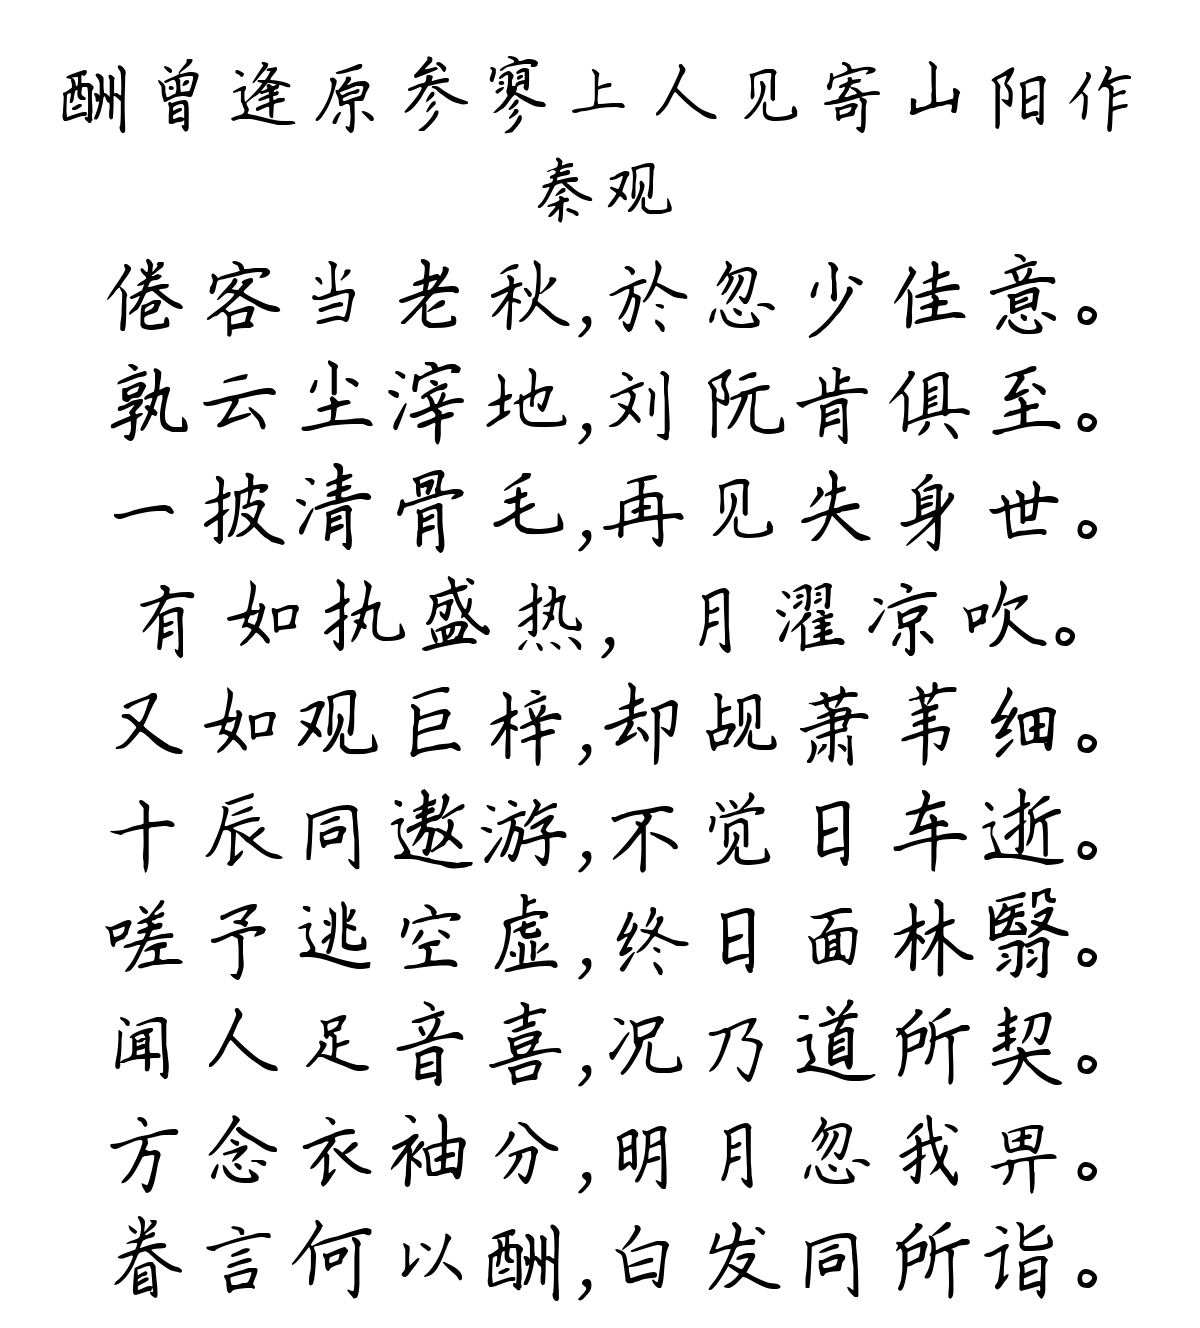 酬曾逢原参寥上人见寄山阳作
秦观
倦客当老秋,於忽少佳意。
孰云尘滓地,刘阮肯俱至。
一披清骨毛,再见失身世。
有如执盛热, 月濯凉吹。
又如观巨梓,却觇萧苇细。
十辰同遨游,不觉日车逝。
嗟予逃空虚,终日面林翳。
闻人足音喜,况乃道所契。
方念衣袖分,明月忽我畀。
眷言何以酬,白发同所诣。